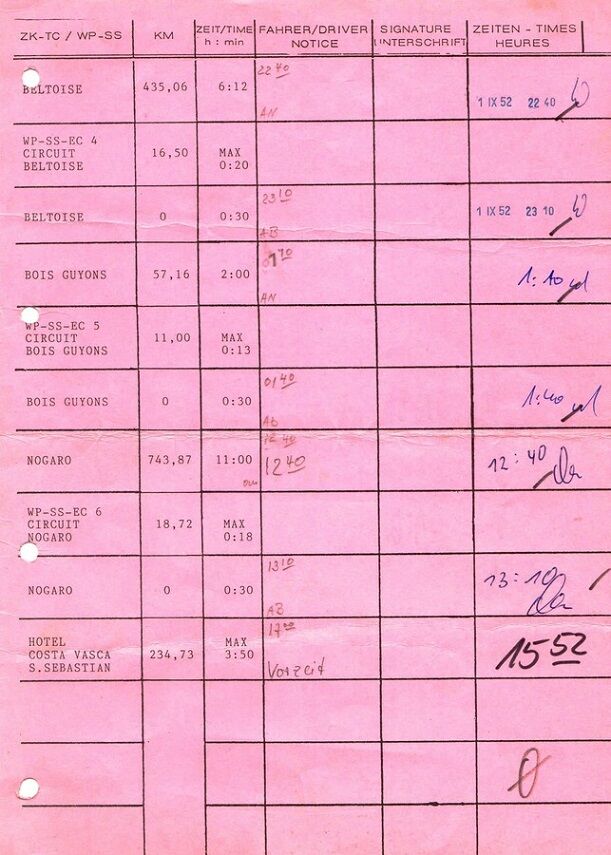 ZK-TC / WP-SS KM ZEIT/TIME FAHRER/DRIVER SIGNATURE ZEITEN - TIMES
h : min NOTICE UNTERSCHRIFT HEURES
22 40
BELTOISE 435,06 6:12
1 IX 52 22 40
AN
WP-SS-EC 4
CIRCUIT 16,50 MAX
BELTOISE 0:20
23 10
BELTOISE 0 0:30 1 IX 52 23 10
AB
BOIS GUYONS 57,16 2:00 1:10
AN
WP-SS-EC 5
CIRCUIT 11,00 MAX
BOIS GUYONS 0:13
01 40
BOIS GUYONS 0 0:30 1:40
Ab
12 40
NOGARO 743,87 11:00 12 40 12:40
WP-SS-EC 6
CIRCUIT 18,72 MAX
NOGARO 0:18
13 10
NOGARO 0 0:30 13:10
AB
17 00
HOTEL MAX
COSTA VASCA 234,73 3:50 15 52
S.SEBASTIAN Vorzeit
0